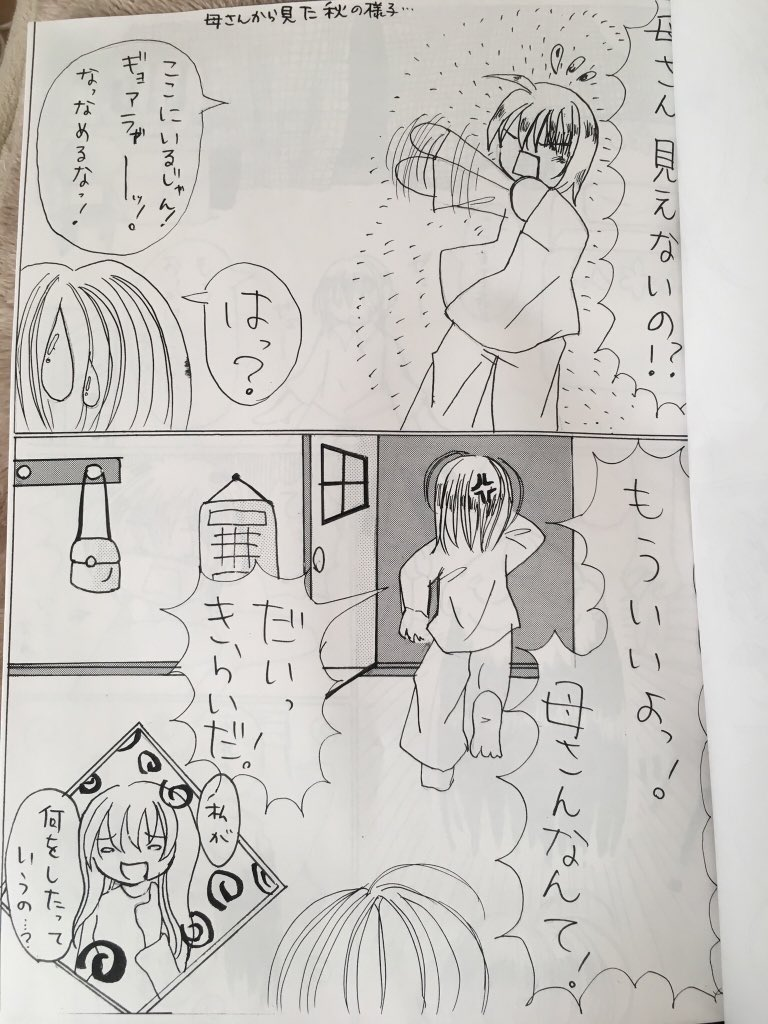 母さんから見た秋の様子…
母さん見えないの!?
ここにいるじゃん!
ギョアラァーーッ!。
なっなめるなっ!
はっ?
もういいよっ!。
母さんなんて!。
だいっ
きらいだ!。
私が
何をしたって
いうの…?